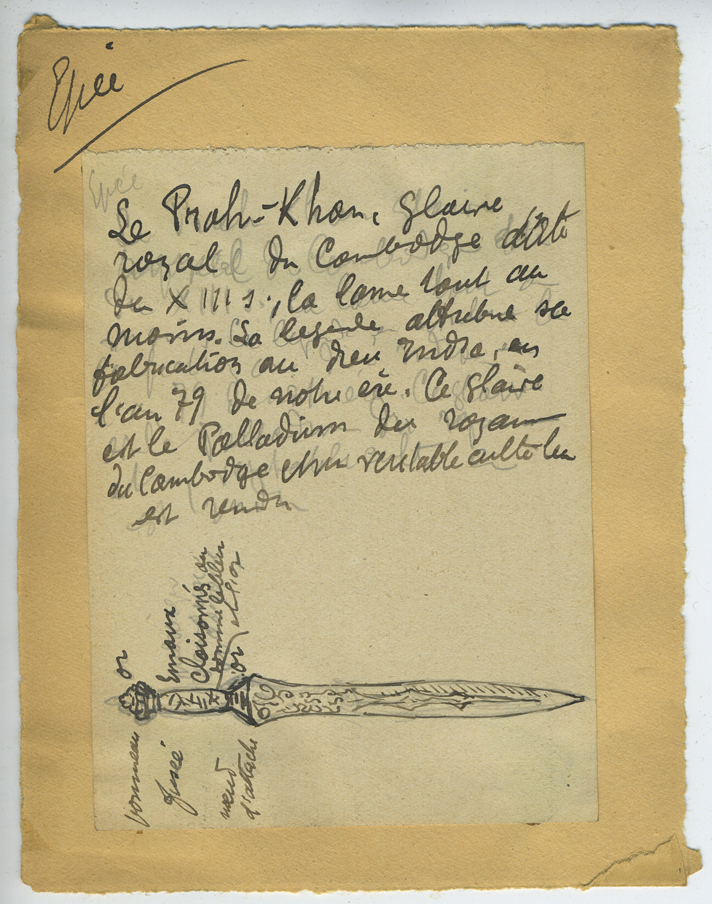 Epée
Epée
Le Prah-Khan, glaive
royal du Cambodge date
du XIII s., la lame tout au
moins. La legende attribue sa
fabrication au dieu Indra, en
l'an 79 de notre ère. Ce glaive
est le Palladium du royaume
du Cambodge et un veritable culte lui
est rendu
or
Emaux
cloisonnés
or
et or
pommeau
fusée
nœud
d'attache